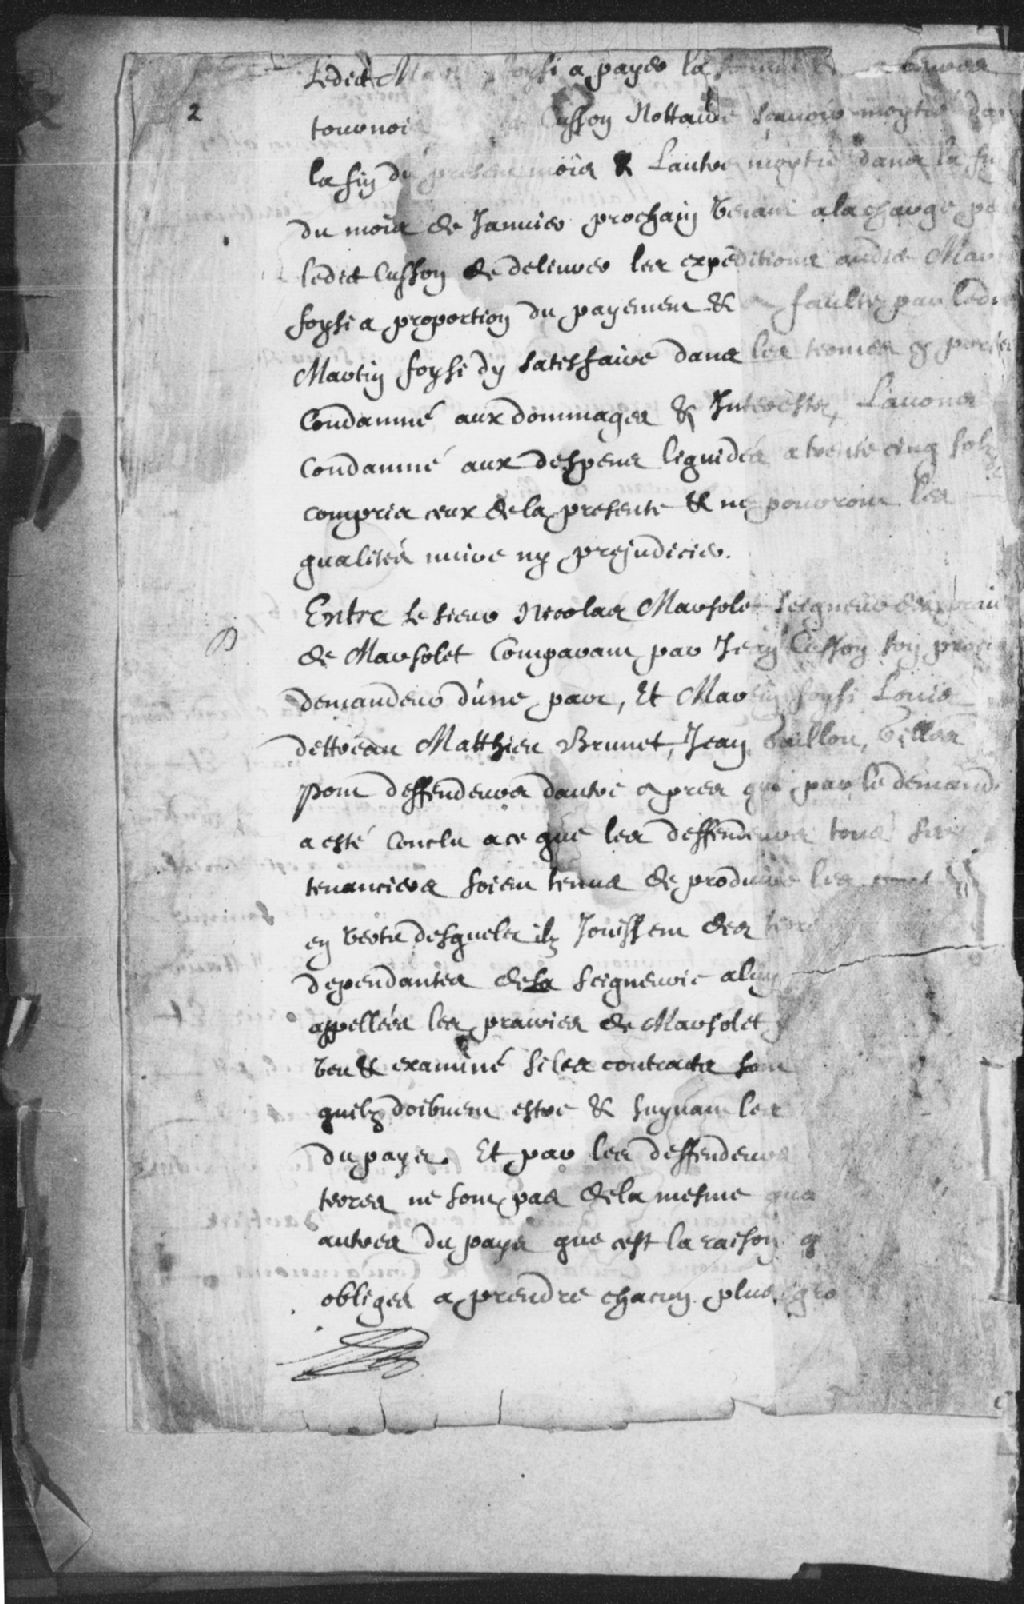 2
Ledit foysi a payer la
tournois Cusson Nottaire scauoir moytié dans
la fin du present mois & Lautre moytié dans la fin
du mois de Januier prochain venant a la charge par
ledit Cusson de deliurer les expeditions audit Martin
foysi a proportion du payement & a faulte par ledit
Martin foysi dy satisfaire dans les termes &
Condamné aux dommages & Interestz, Lauons
Condamné aux despens liquidés a trente cinq solz
compris ceux de la presente & ne pouront les
qualités nuire ny prejudicier.
Entre Le sieur Nicolas Marsolet seigneur des prairies
de Marsolet Comparant par Jean Cusson son
demandeur d'une part, Et Martin foysi Louis
dettreau Matthieu Brunet, Jean baillon,
pour deffendeurs dautre apres que par le demand
a esté Conclu a ce que les deffendeurs tous
tenanciers soient tenus de produire les
en vertu desquels ilz Jouissent des terres
dependantes de sa seigneurie a luy
appellées les prairies de Marsolet
veu & examiné si les contracts sont
quilz doibuent estre & suyuant les
du pays. Et par les deffendeurs
terres ne sont pas de la mesme qua
autres du pays que cest la raison q
obligés a prendre chacun plus